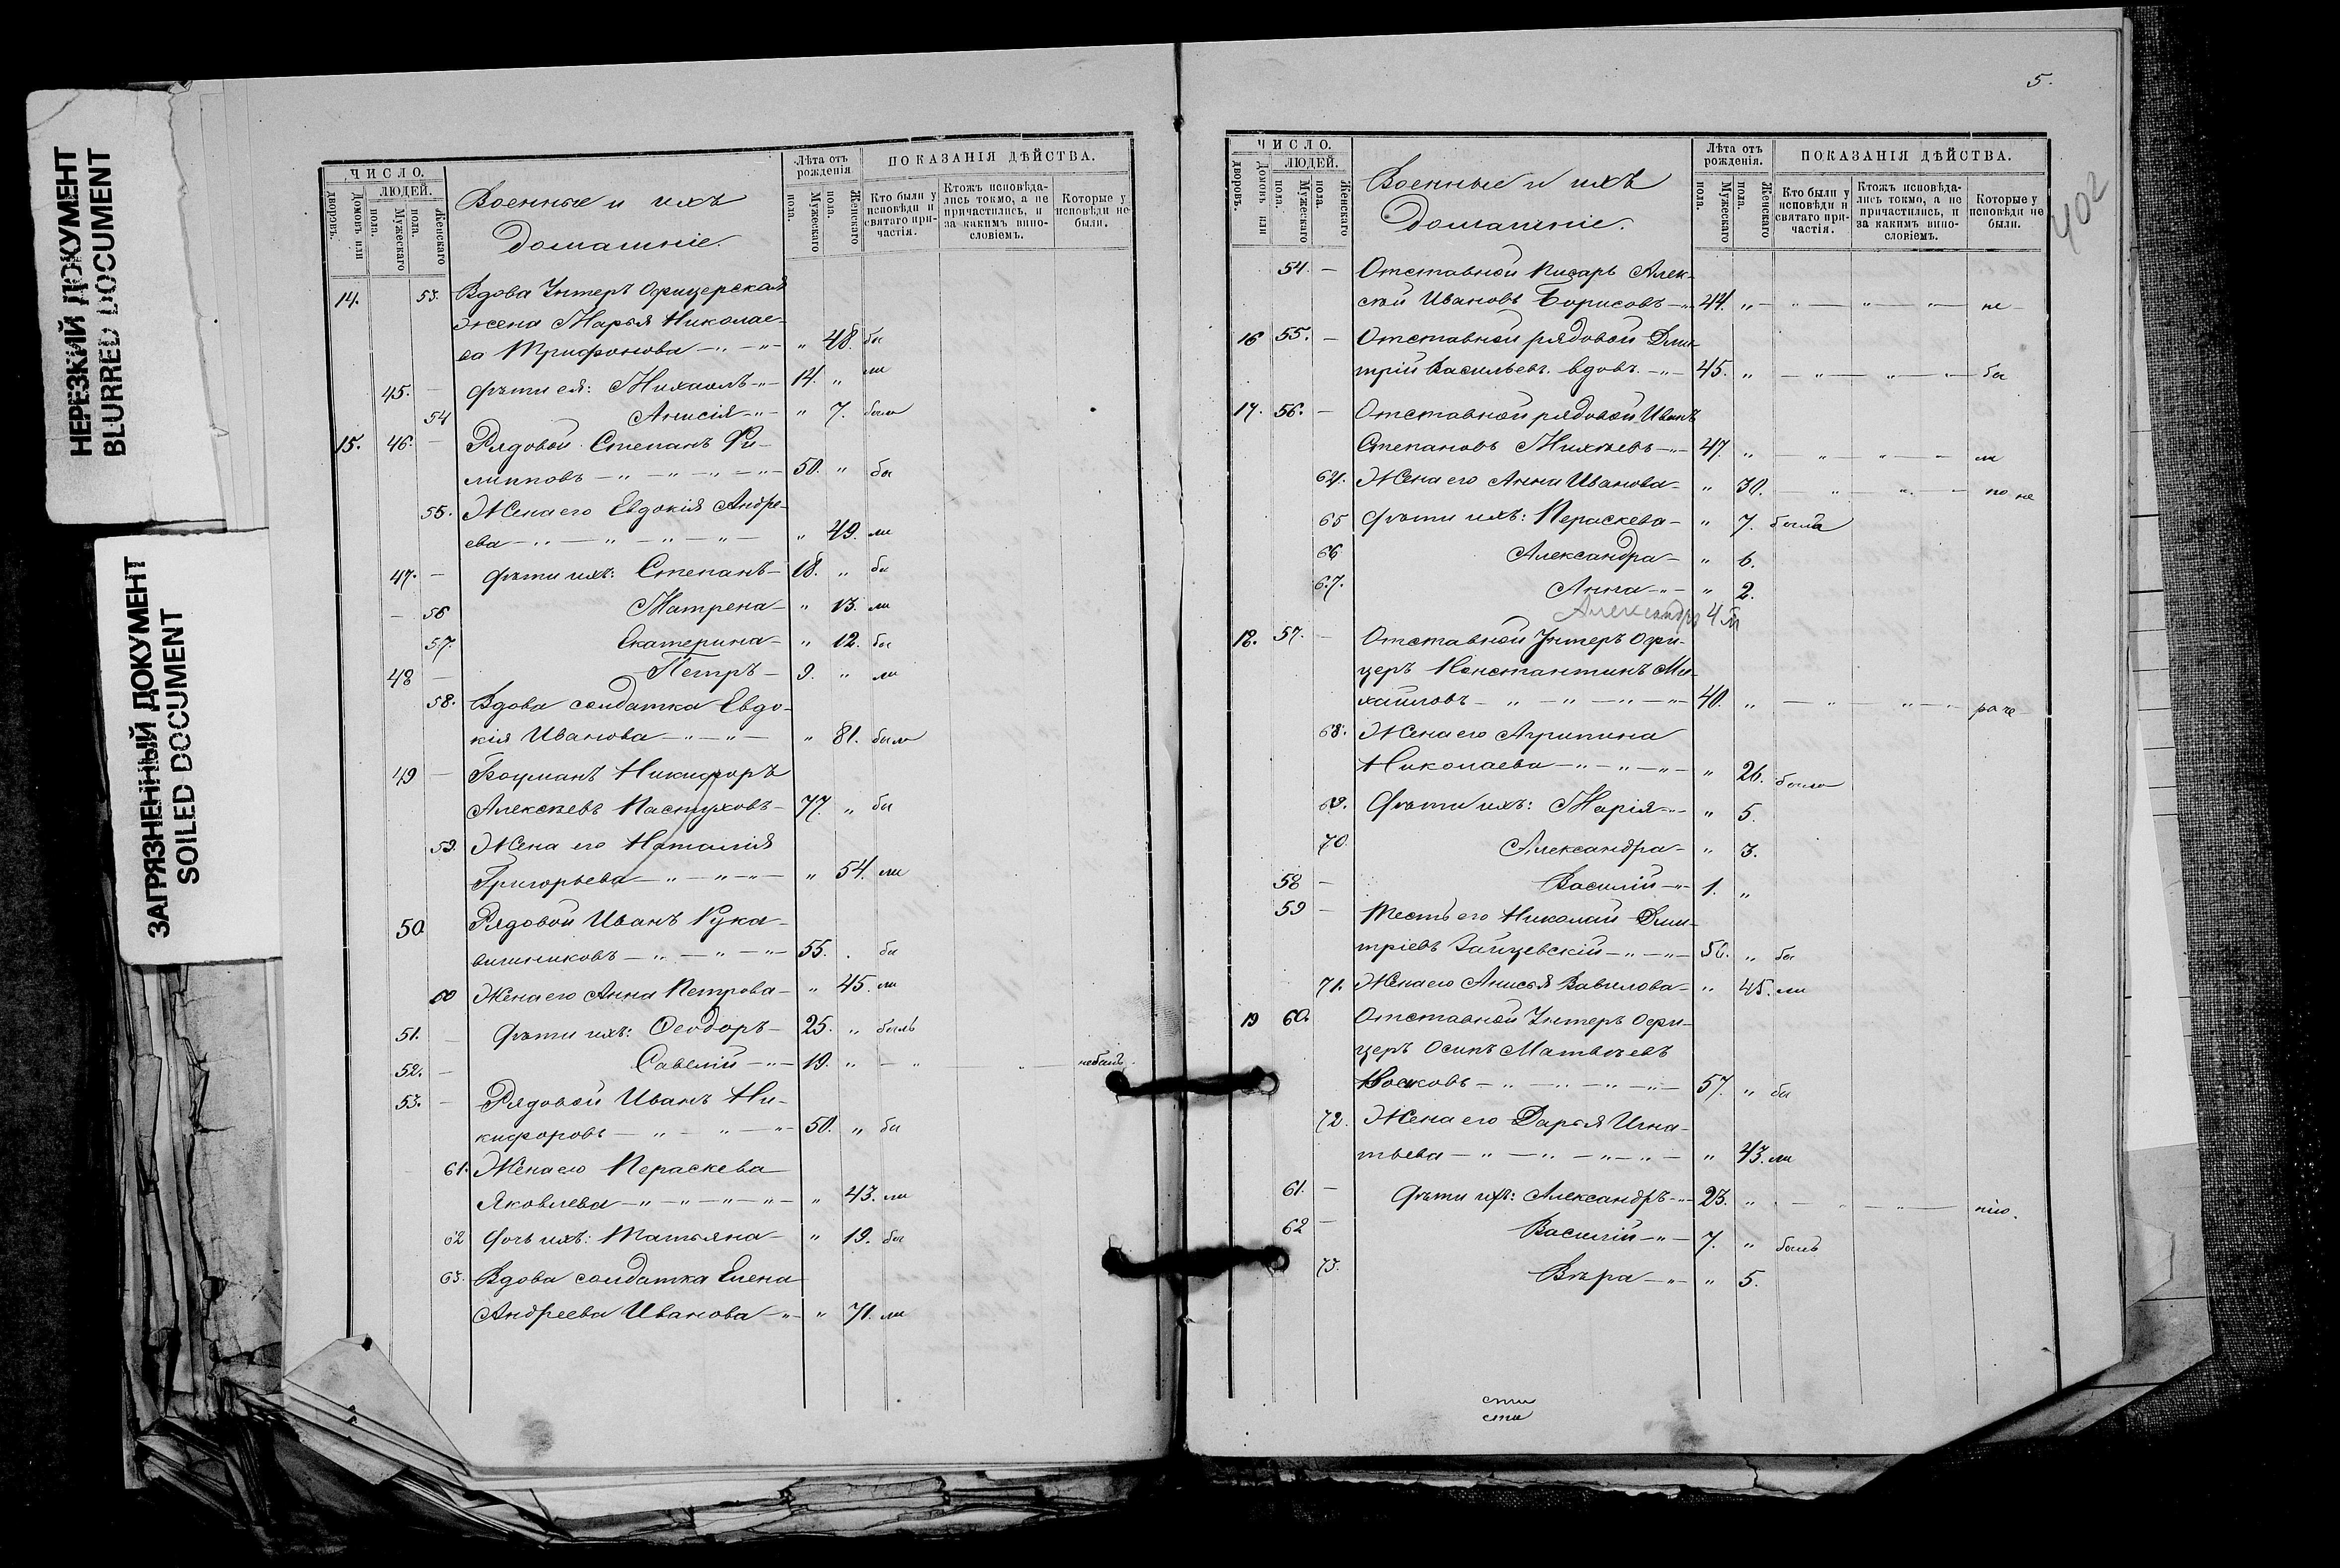 НЕРЕЗКИЙ ДОКУМЕНТ
BLURRED DOCUMENT
ЗАГРЯЗНЕННЫЙ ДОКУМЕНТ
SOILED DOCUMENT
ЧИСЛО.
ЛЮДЕЙ.
дворовъ.
Домовъ или
Мужескаго пола.
Женскаго пола.
Военные и ихъ
Домашніе.
Лѣта отъ рожденія
Мужескаго пола.
Женскаго пола.
ПОКАЗАНІЯ ДѢЙСТВА.
Кто были у исповѣди и святаго причастія.
Ктожъ исповѣдались токмо, а не причастились, и за какимъ винословіемъ.
Которые у исповѣди не были.
14. 53. Вдова Унтеръ Офицерская
жена Марья Николае-
ва Трифонова — „ — „ — „ 48. бы
45. — Дѣти ея: Михаилъ — „ — 14. „ ли
54 Анисія — „ — „ 7. была
15. 46. — Рядовой Степанъ Фи-
липповъ — „ — „ — „ — „ — 50. „ бы
55. Жена его Евдокія Андре-
ева — „ — „ — „ — „ — „ 49. ли
47. — Дѣти ихъ: Степанъ — 18. „ бы
— 56 Матрена — „ 13. ли
57. Екатерина — „ 12. бы
48 — Петръ — 9. „ ли
58. Вдова солдатка Евдо-
кія Иванова — „ — „ — „ 81. была
49 — Боцманъ Никифоръ
Алексѣевъ Пастуховъ — 77. „ бы
59. Жена его Наталія
Григорьева — „ — „ — „ — „ 54. ли
50 Рядовой Иванъ Рука-
вишниковъ — „ — „ — „ — 55. . бы
60 Жена его Анна Петрова — „ 45. ли
51. — Дѣти ихъ: Ѳеодоръ — 25. „ былъ
52. — Савелій — „ — 19. „ — „ — „ — небылъ.
53. — Рядовой Иванъ Ни-
кифоровъ — „ — „ — „ — 50. „ бы
61. Жена его Параскева
Яковлева — „ — „ — „ — „ — „ 43. ли
62 Дочь ихъ: Татьяна — „ 19. бы
63. Вдова солдатка Елена
Андреева Иванова — „ — „ 71. ли
5.
402
ЧИСЛО.
ЛЮДЕЙ.
дворовъ.
Домовъ или
Мужескаго пола.
Женскаго пола.
Военные и ихъ
Домашніе.
Лѣта отъ рожденія.
Мужескаго пола.
Женскаго пола.
ПОКАЗАНІЯ ДѢЙСТВА.
Кто были у исповѣди и святаго причастія.
Ктожъ исповѣдались токмо, а не причастились, и за какимъ винословіемъ.
Которые у исповѣди не были.
54. — Отставной писарь Алек-
сѣй Ивановъ Борисовъ — „ 44. „ — „ — „ — „ — не
16 55. — Отставной рядовой Дми-
трій Васильевъ. вдовъ. — „ — 45. „ — „ — „ — „ — бы
17. 56. — Отставной рядовой Иванъ
Степановъ Михѣевъ — „ — 47. „ — „ — „ — ли
64. Жена его Анна Иванова — „ 30. — „ — „ — по не
65 Дѣти ихъ: Параскева — „ 7. была
66 Александра — „ 6.
67. Анна — „ — „ 2.
Александръ 4
18. 57. — Отставной Унтеръ Офи-
церъ Константинъ Ми-
хайловъ — „ — „ — „ — „ — 40. „ — „ — „ — „ — ра че
68. Жена его Агрипина
Николаева — „ — „ — „ — „ 26. была
69. Дѣти ихъ: Марія — „ — „ 5.
70. Александра — „ 3.
58 — Василій — „ — 1. „
59 — Тесть его Николай Дми-
тріевъ Зайцевскій — „ — „ — 56. „ бы
71. Жена его Анисья Вавилова — „ 45. ли
19 60. Отставной Унтеръ Офи-
церъ Осипъ Матвѣевъ
Носковъ — „ — „ — „ — „ — 57. „ бы
72. Жена его Дарья Игна-
тьева — „ — „ — „ — „ — „ 43. ли
61. — Дѣти ихъ: Александръ — „ — 23. „ — „ — „ —
62 — Василій — „ — 7. „ былъ
73. Вѣра — „ — „ 5.
сти
сти